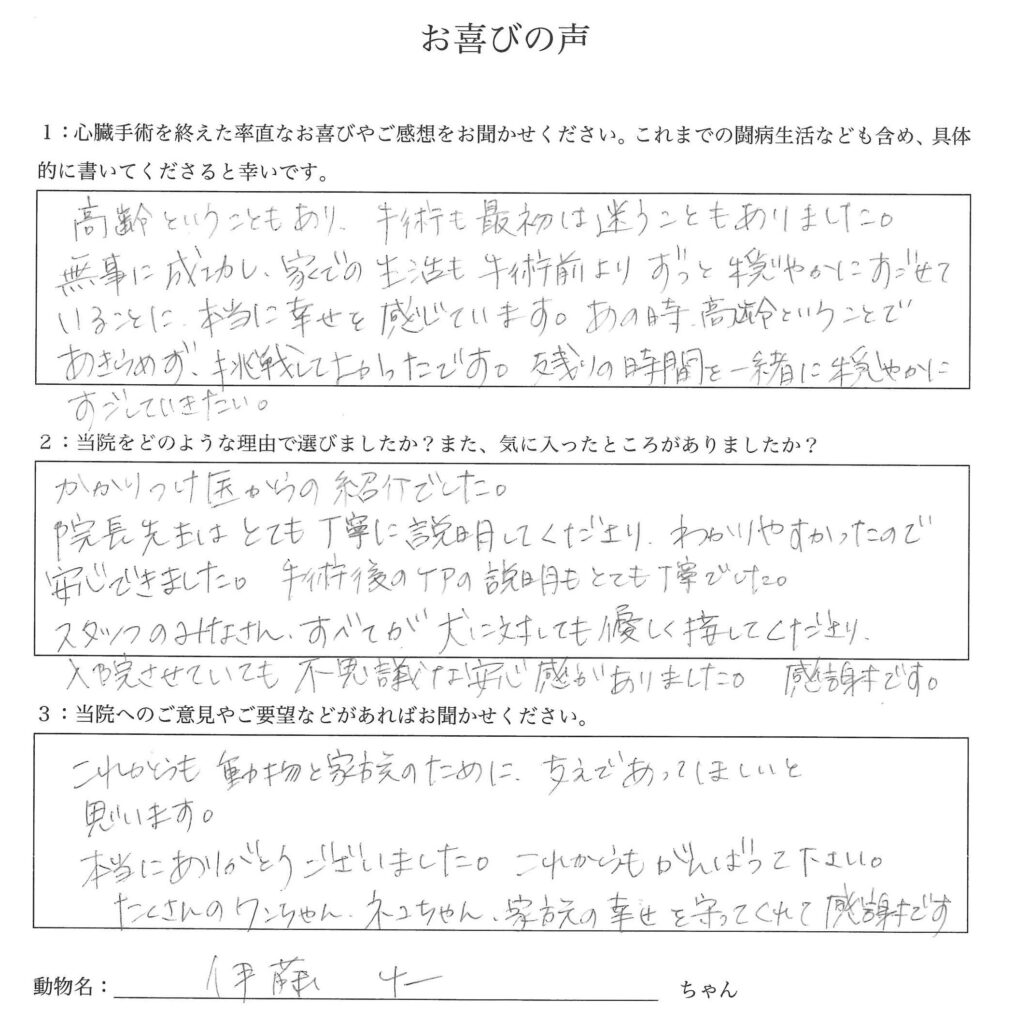 お喜びの声
1：心臓手術を終えた率直なお喜びやご感想をお聞かせください。これまでの闘病生活なども含め、具体
的に書いてくださると幸いです。
高齢ということもあり、手術も最初は迷うこともありました。
無事に成功し、家での生活も手術前よりずっと穏やかにすごせて
いることに、本当に幸せを感じています。あの時、高齢ということで
あきらめず、挑戦してよかったです。残りの時間を一緒に穏やかに
すごしていきたい。
2：当院をどのような理由で選びましたか？また、気に入ったところがありましたか？
かかりつけ医からの紹介でした。
院長先生はとても丁寧に説明してくださり、わかりやすかったので
安心できました。手術後のケアの説明もとても丁寧でした。
スタッフのみなさん、すべてが犬に対しても優しく接してくださり、
入院させていても不思議な安心感がありました。感謝です。
3：当院へのご意見やご要望などがあればお聞かせください。
これからも動物と家族のために、支えであってほしいと
思います。
本当にありがとうございました。これからもがんばって下さい。
たくさんのワンちゃん、ネコちゃん、家族の幸せを守ってくれて感謝です
動物名：伊藤 ちゃん